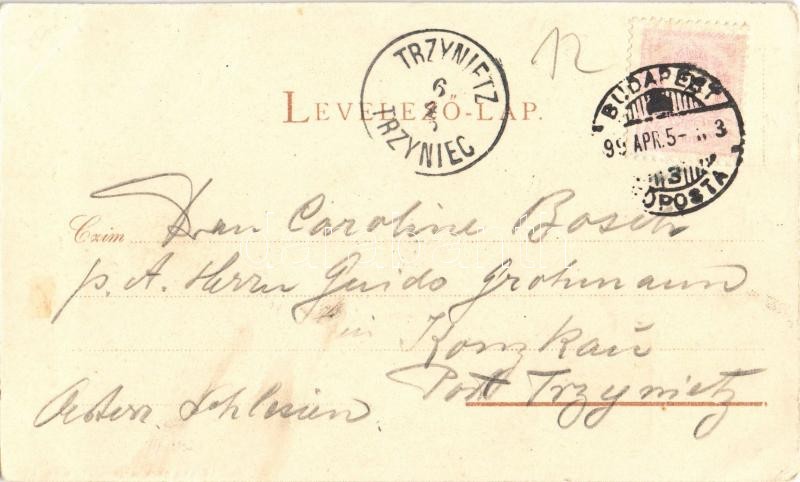 12
LEVELEZŐ-LAP.
TRZYNIETZ
6
TRZYNIEC
BUDAPEST
99 APR. 5
3
FŐPOSTA
Czim Frau Caroline Bosch
p. A. Herrn Guido Grohmann
in Konzkau
Post Trzynietz
Oesterr. Schlesien.